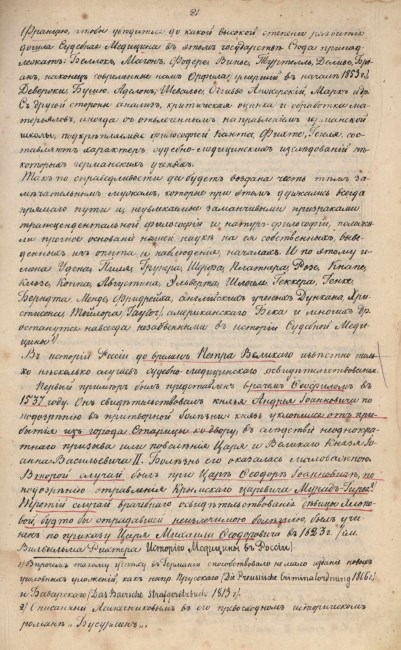 2
Францію, чтобы убедиться до какой высокой степени развитія
дошла Судебная Медицина въ этомъ государствѣ. Сюда принад-
лежатъ: Беллокъ, Магонъ, Фодере, Винье, Туртелль,
наконецъ современные намъ Орфила, умершій въ началѣ 1853 г.,
Девержи, Адлонъ, Шевалье, Оливье Анжерскій, Маркъ и др.
Съ другой стороны анализъ, критическая оцѣнка и обработка ма-
теріаловъ, иногда съ отвлеченнымъ направленіемъ германской
школы, подкрѣпляемые философіей Канта, Фихте, Гегеля, сос-
тавляютъ характеръ судебно-медицинскихъ изслѣдованій нѣ-
которыхъ германскихъ ученыхъ.
Такъ по справедливости да будетъ воздана честь тѣмъ за-
мѣчательнымъ мужамъ, которые при этомъ держались всегда
прямаго пути и неувлекаемые заманчивыми призраками
трансцендентальной философіи и натуръ-философіи, положи-
ли прочное основаніе нашей науки на ея собственныхъ, выве-
денныхъ изъ опыта и наблюденія началахъ. И по этому и-
мена Удена, Пиля, Грунера, Платнера, Розе, Кнапе,
Клозе, Коппа, Августина, Эльверта, Шлегеля, Геккера, Генке,
Берндта, Менде, Фридрейха, англійскихъ ученыхъ Дункана, Кри-
стисона, Тейлора (Taylor), американскаго Бека и многихъ др.
останутся навсегда незабвенными въ исторіи Судебной Меди-
цины.
Въ исторіи Россіи до временъ Петра Великаго извѣстно толь-
ко нѣсколько случаевъ судебно-медицинскаго освидѣтельствованія.
Первый примѣръ былъ представленъ врачемъ Ѳеофиломъ въ
1537 году. Онъ свидѣтельствовалъ князя Андрея Іоанновича по
подозрѣнію въ притворной болѣзни: князь уклонился отъ при-
бытія изъ города Старицы ко двору, въ слѣдствіе неоднокра-
тнаго призыва или повелѣнія Царя и Великаго Князя Іо-
анна Васильевича II. Болѣзнь его оказалась маловажною.
Второй случай былъ при Царѣ Ѳеодорѣ Іоанновичѣ, по
подозрѣнію отравленія Крымскаго царевича Мурадъ-Гирея.
Третій случай врачебнаго освидѣтельствованія дѣвицы Хлопо-
вой, будто бы страдавшей неизлечимою болѣзнію, былъ учи-
ненъ по приказу Царя Михаила Ѳеодоровича въ 1623 г. (см.
Вильгельма Рихтера Исторію Медицины въ Россіи).
1) Впрочемъ такому успѣху въ Германіи способствовало не мало изданіе новыхъ
уголовныхъ уложеній, какъ напр. Прусскаго (Die Preussische Criminalordnung 1806 г.)
и Баварскаго (Das Bairische Strafgesetzbuch 1813 г.).
2) Описанный Лажечниковымъ въ его превосходномъ историческомъ
романѣ „Бусурманъ„.